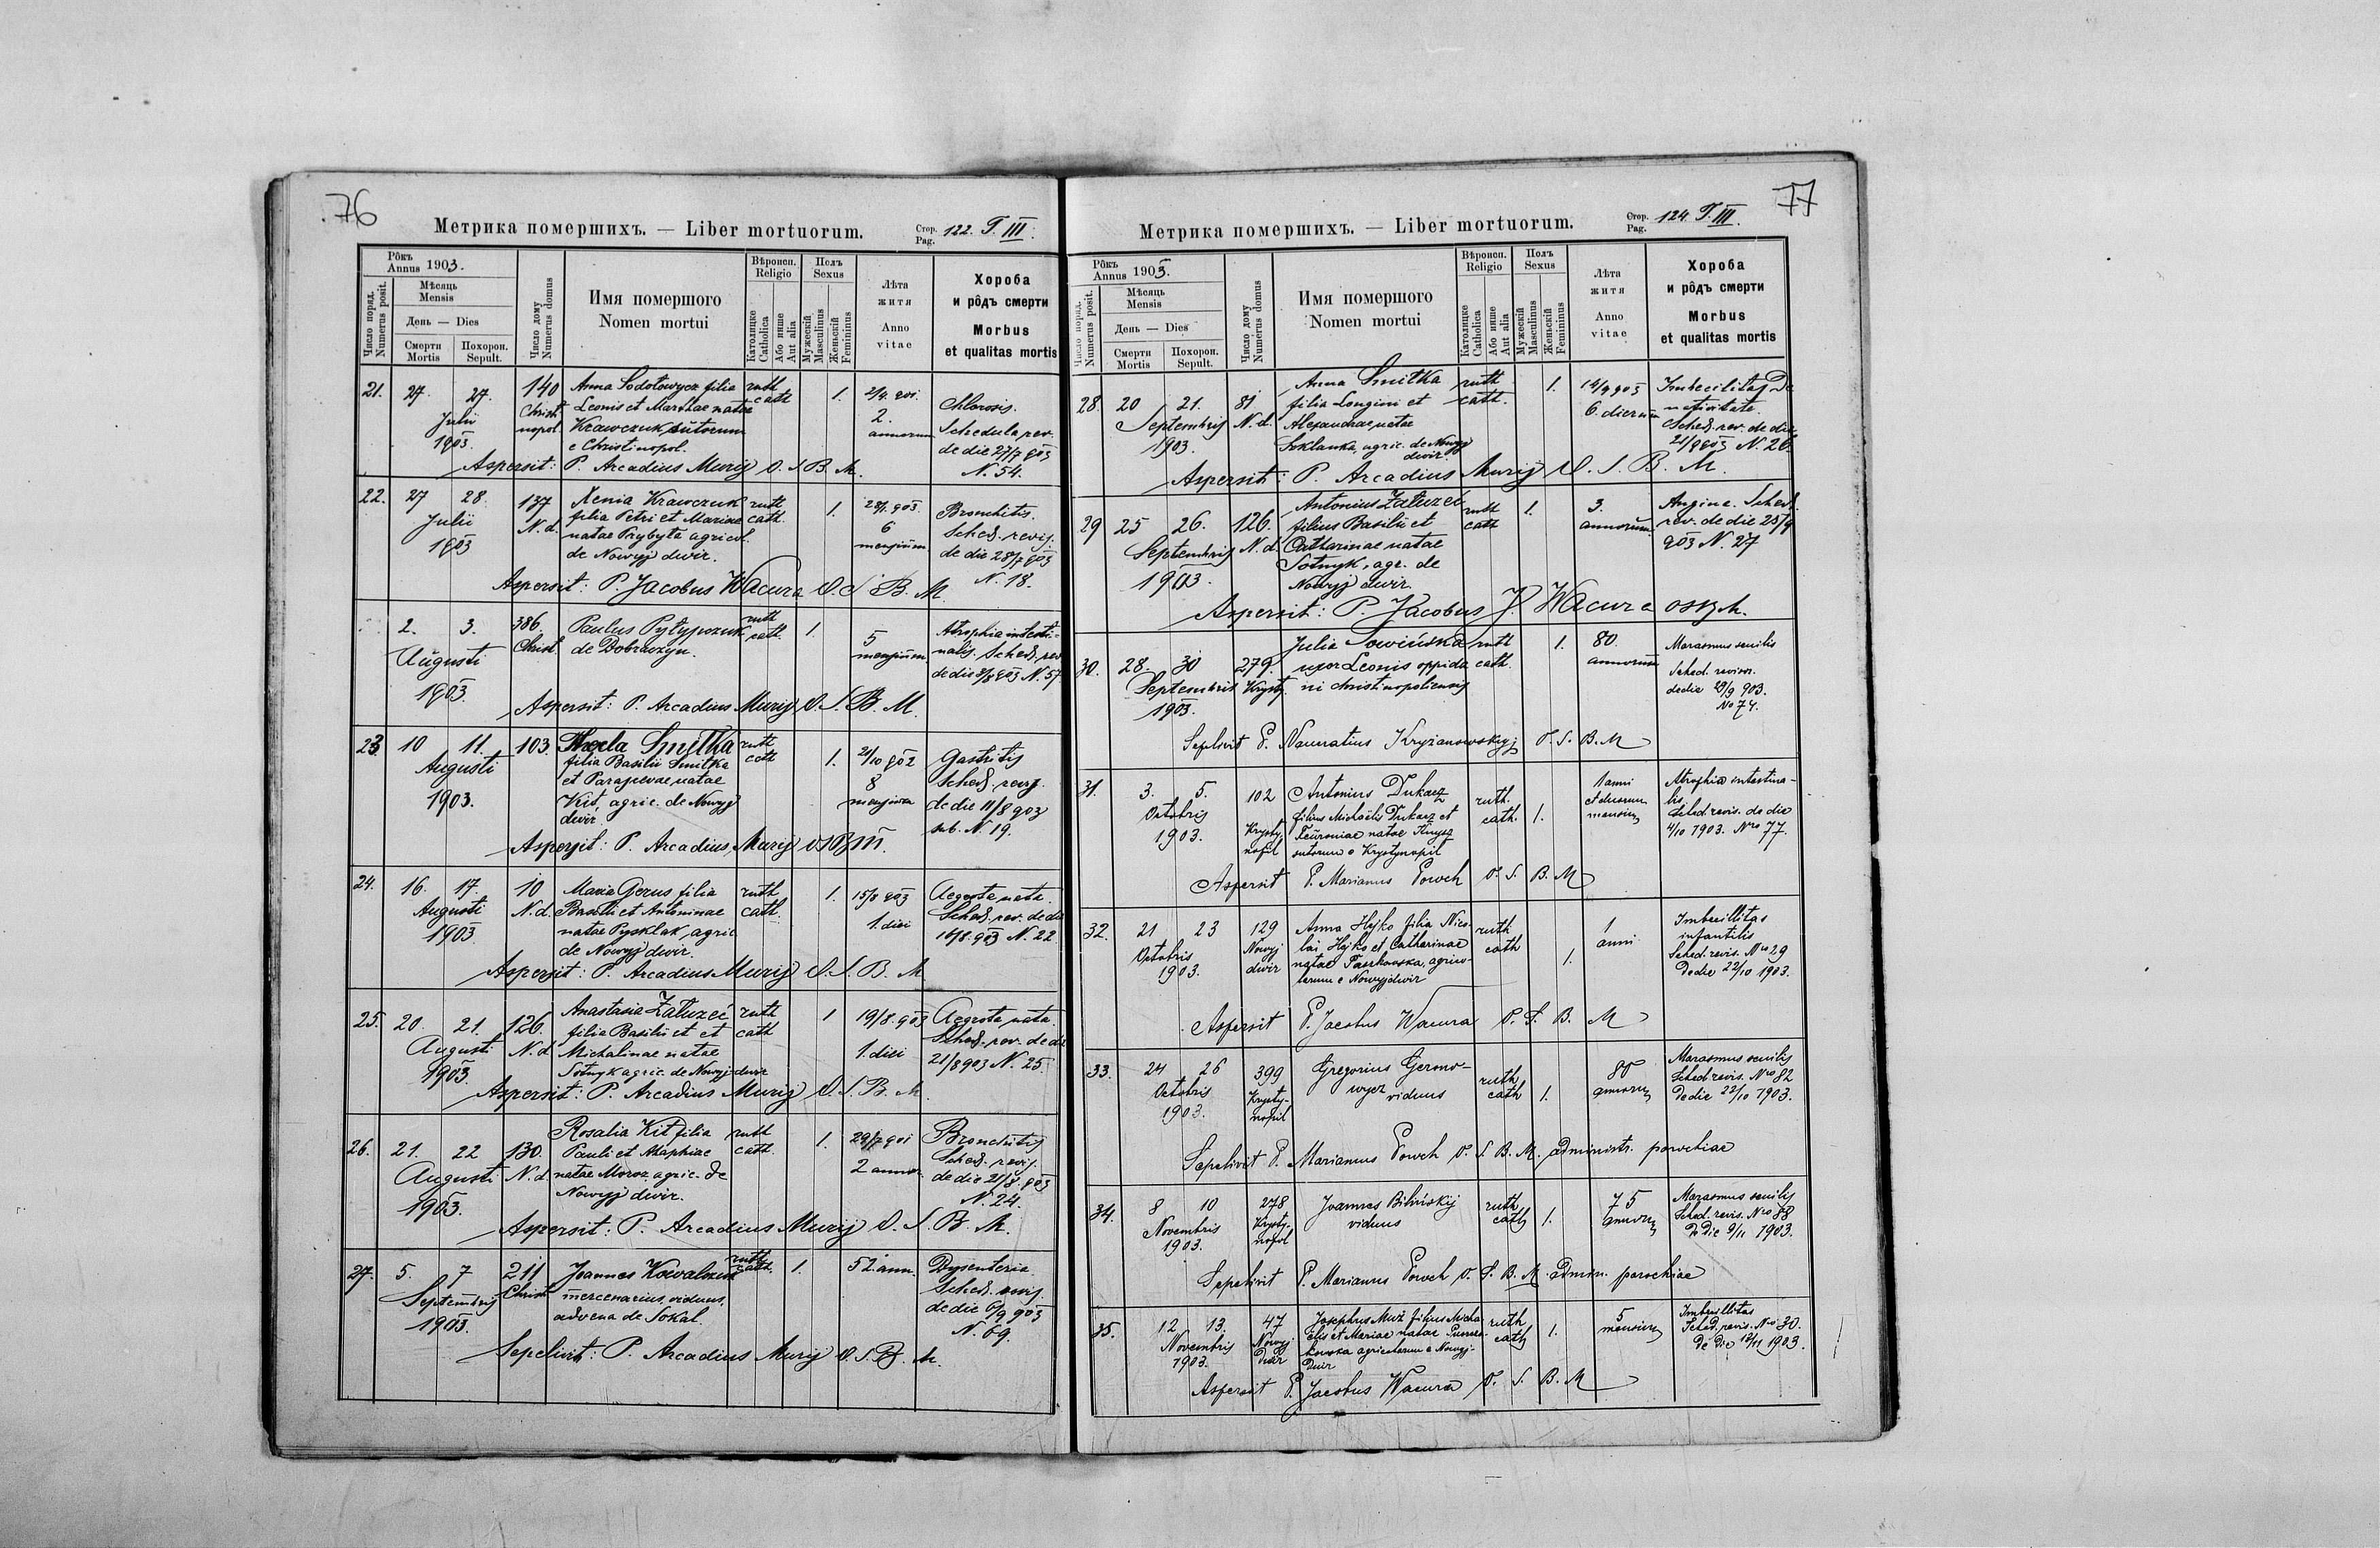 76
Метрика помершихъ. — Liber mortuorum.
Стор. Pag. 122. T. III.
Рôкъ Annus 1903.
Мѣсяць Mensis
День — Dies
Число поряд. Numerus posit.
Смерти Mortis
Похорон. Sepult.
Число дому Numerus domus
Имя помершого
Nomen mortui
Вѣроисп. Religio
Католицке Catholica
Або инше Aut alia
Полъ Sexus
Мужескій Masculinus
Женьскій Femininus
Лѣта житя
Anno vitae
Хороба
и рôдъ смерти
Morbus
et qualitas mortis
21. 27. 27. Julii 1903. 140 Christinopol.
Anna Sodolowycz filia
Leonis et Marthae natae
Krawczuk, sutorum
e Christinopol.
ruth cath 1. 21/4 901. 2. annorum
Chlorosis.
Schedula rev.
de die 27/7 903
N. 54.
Aspersit: P. Arcadius Muryj O. S. B. M.
22. 27 28. Julii 1903 137 N. d.
Xenia Krawczuk
filia Petri et Mariae
natae Prybyla agricol.
de Nowyj dwir.
ruth cath. 1. 28/1. 903. 6 mensium
Bronchitis.
Sched. revis.
de die 28/7 903
N. 18.
Aspersit: P. Jacobus Wacura O. S. B. M.
2. 3. Augusti 1903. 386. Christ
Paulus Pylypczuk
de Dobraczyn.
ruth cath. 1. 5 mensium
Atrophia intesti-
nalis. Sched. rev.
de die 3/8 903 N. 57
Aspersit: P. Arcadius Muryj O. S. B. M.
23 10 11. Augusti 1903. 103.
Thecla Smitka
filia Basilii Smitka
et Parascevae natae
Kit, agric. de Nowyj
dwir
ruth cath 1. 21/10 902 8 mensium
Gastritis
Sched. revis.
de die 11/8 903
sub. N. 19.
Aspersit: P. Arcadius Muryj OSBM.
24. 16. 17. Augusti 1903 10 N. d.
Maria Gerus filia
Basilii et Antoninae
natae Pysklak, agric
de Nowyj dwir.
ruth cath. 1. 15/8 903 1. diei
Aegrota nata.
Sched. rev. de die
16/8. 903 N. 22
Aspersit: P. Arcadius Muryj O. S. B. M
25. 20. 21. Augusti 1903. 126. N. d
Anastasia Zaluzci
filia Basilii et et
Michalinae natae
Sotnyk agric. de Nowyj dwir
ruth cath 1 19/8. 903 1. diei
Aegrota nata.
Sched. rev. de die
21/8 903 N. 25.
Aspersit: P. Arcadius Muryj O. S. B. M.
26. 21. 22 Augusti 1903. 130. N. d.
Rosalia Kit filia
Pauli et Agaphiae
natae Moroz, agric. de
Nowyj dwir.
ruth cath. 1. 29/7 901 2 annor.
Bronchitis
Sched. revis.
de die 21/8. 903
N. 24.
Aspersit: P. Arcadius Muryj O. S. B. M.
27. 5. 7 Septembris 1903. 211 Christ
Joannes Kowalczuk
mercenarius, viduus,
advena de Sokal.
ruth cath. 1. 52. ann.
Dysenteria
Sched. revis.
de die 6/9 903
N. 69.
Sepelivit: P. Arcadius Muryj O. S. B. M.
77
Метрика помершихъ. — Liber mortuorum.
Стор. Pag. 124 T. III.
Рôкъ Annus 1903.
Мѣсяць Mensis
День — Dies
Число поряд. Numerus posit.
Смерти Mortis
Похорон. Sepult.
Число дому Numerus domus
Имя помершого
Nomen mortui
Вѣроисп. Religio
Католицке Catholica
Або инше Aut alia
Полъ Sexus
Мужескій Masculinus
Женьскій Femininus
Лѣта житя
Anno vitae
Хороба
и рôдъ смерти
Morbus
et qualitas mortis
28. 20 21. Septembris 1903. 81 N. d.
Anna Smitka
filia Longini et
Alexandrae natae
Szklanka, agric. de Nowyj
dwir.
ruth cath. 1. 14/9 903 6. dierum
Imbecilitas de
nativitate.
Sched. rev. de die
21/9 903 N. 26.
Aspersit: P. Arcadius Muryj O. S. B. M.
29 25 26. Septembris 1903. 126. N. d.
Antonius Zaluzci
filius Basilii et
Catharinae natae
Sotnyk, agr. de
Nowyj dwir
ruth cath 1. 3. annorum
Angina. Sched.
rev. de die 25/9
903 N. 27
Aspersit: P. Jacobus J. Wacura OSBM.
30. 28. 30 Septembris 1903. 279. Krysty.
Julia Sowińska
uxor Leonis oppida
ni christinopoliensis
ruth cath. 1. 80. annorum
Marasmus senilis
Sched. revisor.
de die 29/9 903.
No 74.
Sepelivit P. Naucratius Kryżanowskyj O. S. B. M
31. 3. 5. Octobris 1903. 102 Krystynopil
Antonius Dukacz
filius Michaelis Dukacz et
Feuroniae natae Knysz
sutorum e Krystynopil
ruth. cath. 1. 1 anni et duorum mensium
Atrophia intestina-
lis
Sched. revis. de die
4/10 1903. Nro 77.
Aspersit P. Marianus Powch O. S. B. M
32. 21 23 Octobris 1903. 129 Nowyj dwir
Anna Hojko filia Nico-
lai Hojko et Catharinae
natae Paszkowska, agrico-
larum e Nowyjdwir
ruth cath 1. 1 anni
Imbecillitas
infantilis
Sched. revis. Nro 29
De die 22/10 1903.
Aspersit P. Jacobus Wacura O. S. B. M
33. 24 26 Octobris 1903. 399 Krysty-nopil
Gregorius Gerono-
wycz
viduus
ruth cath 1. 80 annorum
Marasmus senilis
Sched. revis. Nro 82
De die 22/10 1903.
Sepelivit P. Marianus Powch O. S. B. M. administr. parochiae
34. 8 10 Novembris 1903. 278 Krysty-nopol
Joannes Bilińskij
viduus
ruth cath 1. 75 annorum
Marasmus senilis
Sched. revis. Nro 88
De Die 9/11 1903.
Sepelivit P. Marianus Powch O. S. B. M. admin. parochiae
35. 12 13. Novembris 1903. 47 Nowyj Dwir
Josephus Muż filius Micha
elis et Mariae natae
agricolarum e Nowyj-
Dwir
ruth cath 1. 5 mensium
Imbecillitas
Sched. revis. Nro 30.
De Die 13/11 1903.
Aspersit P. Jacobus Wacura O. S. B. M